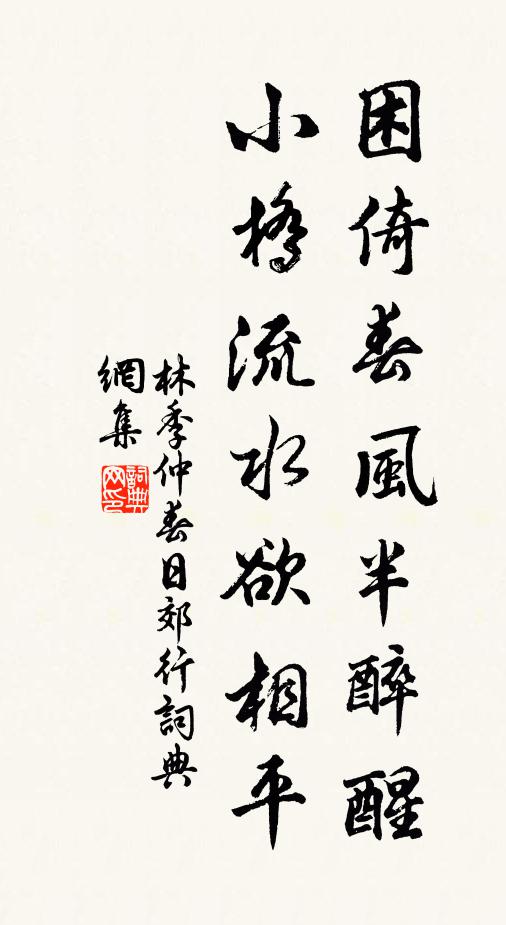 困倚春風半醉醒
小橋流水欲相平
林季仲春日郊行詞典
網集
詞典
网印